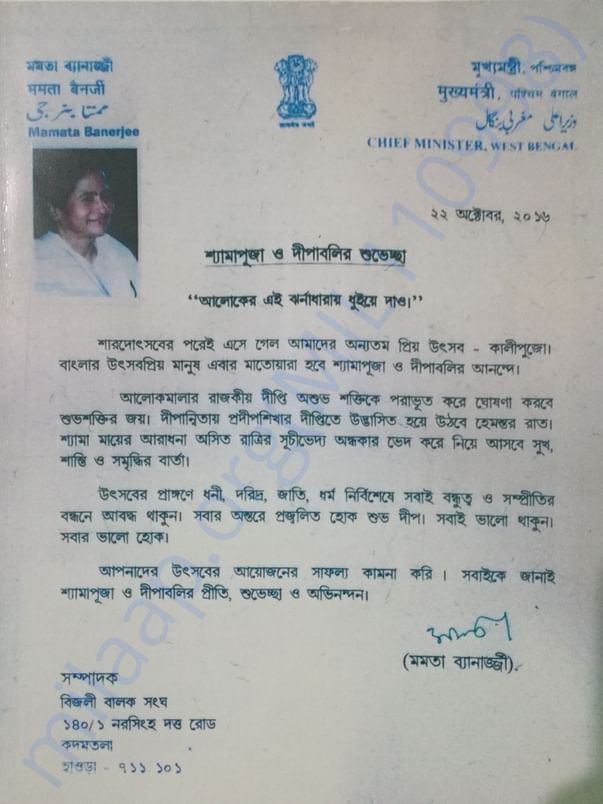 মমতা ব্যানার্জ্জী
ममता बैनर्जी
ممتا بنرجی
Mamata Banerjee
सत्यमेव जयते
মুখ্যমন্ত্রী, পশ্চিমবঙ্গ
मुख्यमंत्री, पश्चिम बंगाल
وزیر اعلیٰ مغربی بنگال
CHIEF MINISTER, WEST BENGAL
২২ অক্টোবর, ২০১৬
শ্যামাপূজা ও দীপাবলির শুভেচ্ছা
“আলোকের এই ঝর্নাধারায় ধুইয়ে দাও।”
শারদোৎসবের পরেই এসে গেল আমাদের অন্যতম প্রিয় উৎসব - কালীপুজো।
বাংলার উৎসবপ্রিয় মানুষ এবার মাতোয়ারা হবে শ্যামাপূজা ও দীপাবলির আনন্দে।
আলোকমালার রাজকীয় দীপ্তি অশুভ শক্তিকে পরাভূত করে ঘোষণা করবে
শুভশক্তির জয়। দীপান্বিতায় প্রদীপশিখার দীপ্তিতে উদ্ভাসিত হয়ে উঠবে হেমন্তর রাত।
শ্যামা মায়ের আরাধনা অসিত রাত্রির সূচীভেদ্য অন্ধকার ভেদ করে নিয়ে আসবে সুখ,
শান্তি ও সমৃদ্ধির বার্তা।
উৎসবের প্রাঙ্গণে ধনী, দরিদ্র, জাতি, ধর্ম নির্বিশেষে সবাই বন্ধুত্ব ও সম্প্রীতির
বন্ধনে আবদ্ধ থাকুন। সবার অন্তরে প্রজ্বলিত হোক শুভ দীপ। সবাই ভালো থাকুন।
সবার ভালো হোক।
আপনাদের উৎসবের আয়োজনের সাফল্য কামনা করি । সবাইকে জানাই
শ্যামাপূজা ও দীপাবলির প্রীতি, শুভেচ্ছা ও অভিনন্দন।
(মমতা ব্যানার্জ্জী)
সম্পাদক
বিজলী বালক সংঘ
১৪০/১ নরসিংহ দত্ত রোড
কদমতলা
হাওড়া - ৭১১ ১০১